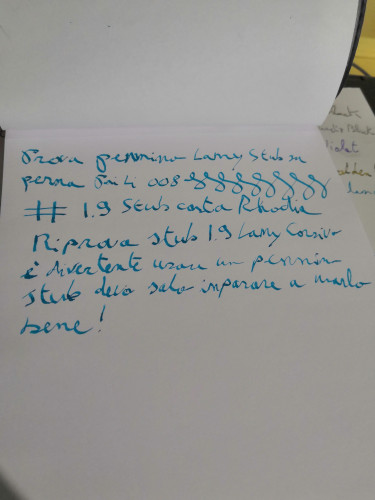 Prova pennino Lamy Stub su
penna Pili 008
# 1.9 Stub carta Rhodia
Riprova stub 1.9 Lamy Corsivo
è divertente usare un pennino
stub devo solo imparare a usarlo
bene!